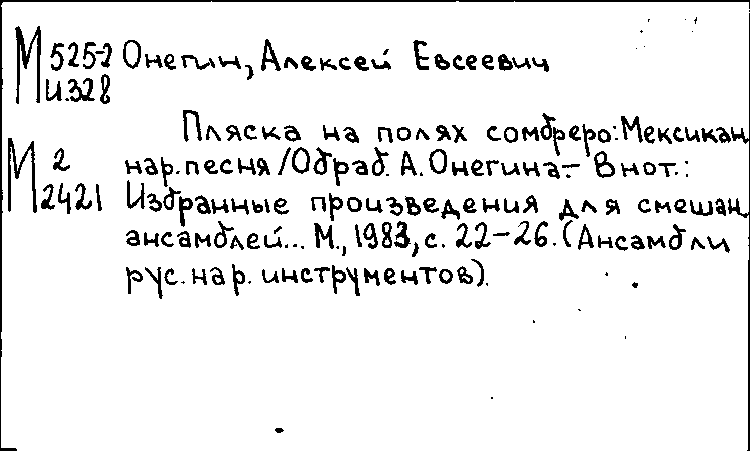 М 525-2 Онегин, Алексей Евсеевич
И.328
Пляска на полях сомбреро: Мексикан.
М 2 нар. песня /Обраб. А. Онегина. – В нот.:
2421 Избранные произведения для смешан.
ансамблей... М., 1983, с. 22–26. (Ансамбли
рус. нар. инструментов).